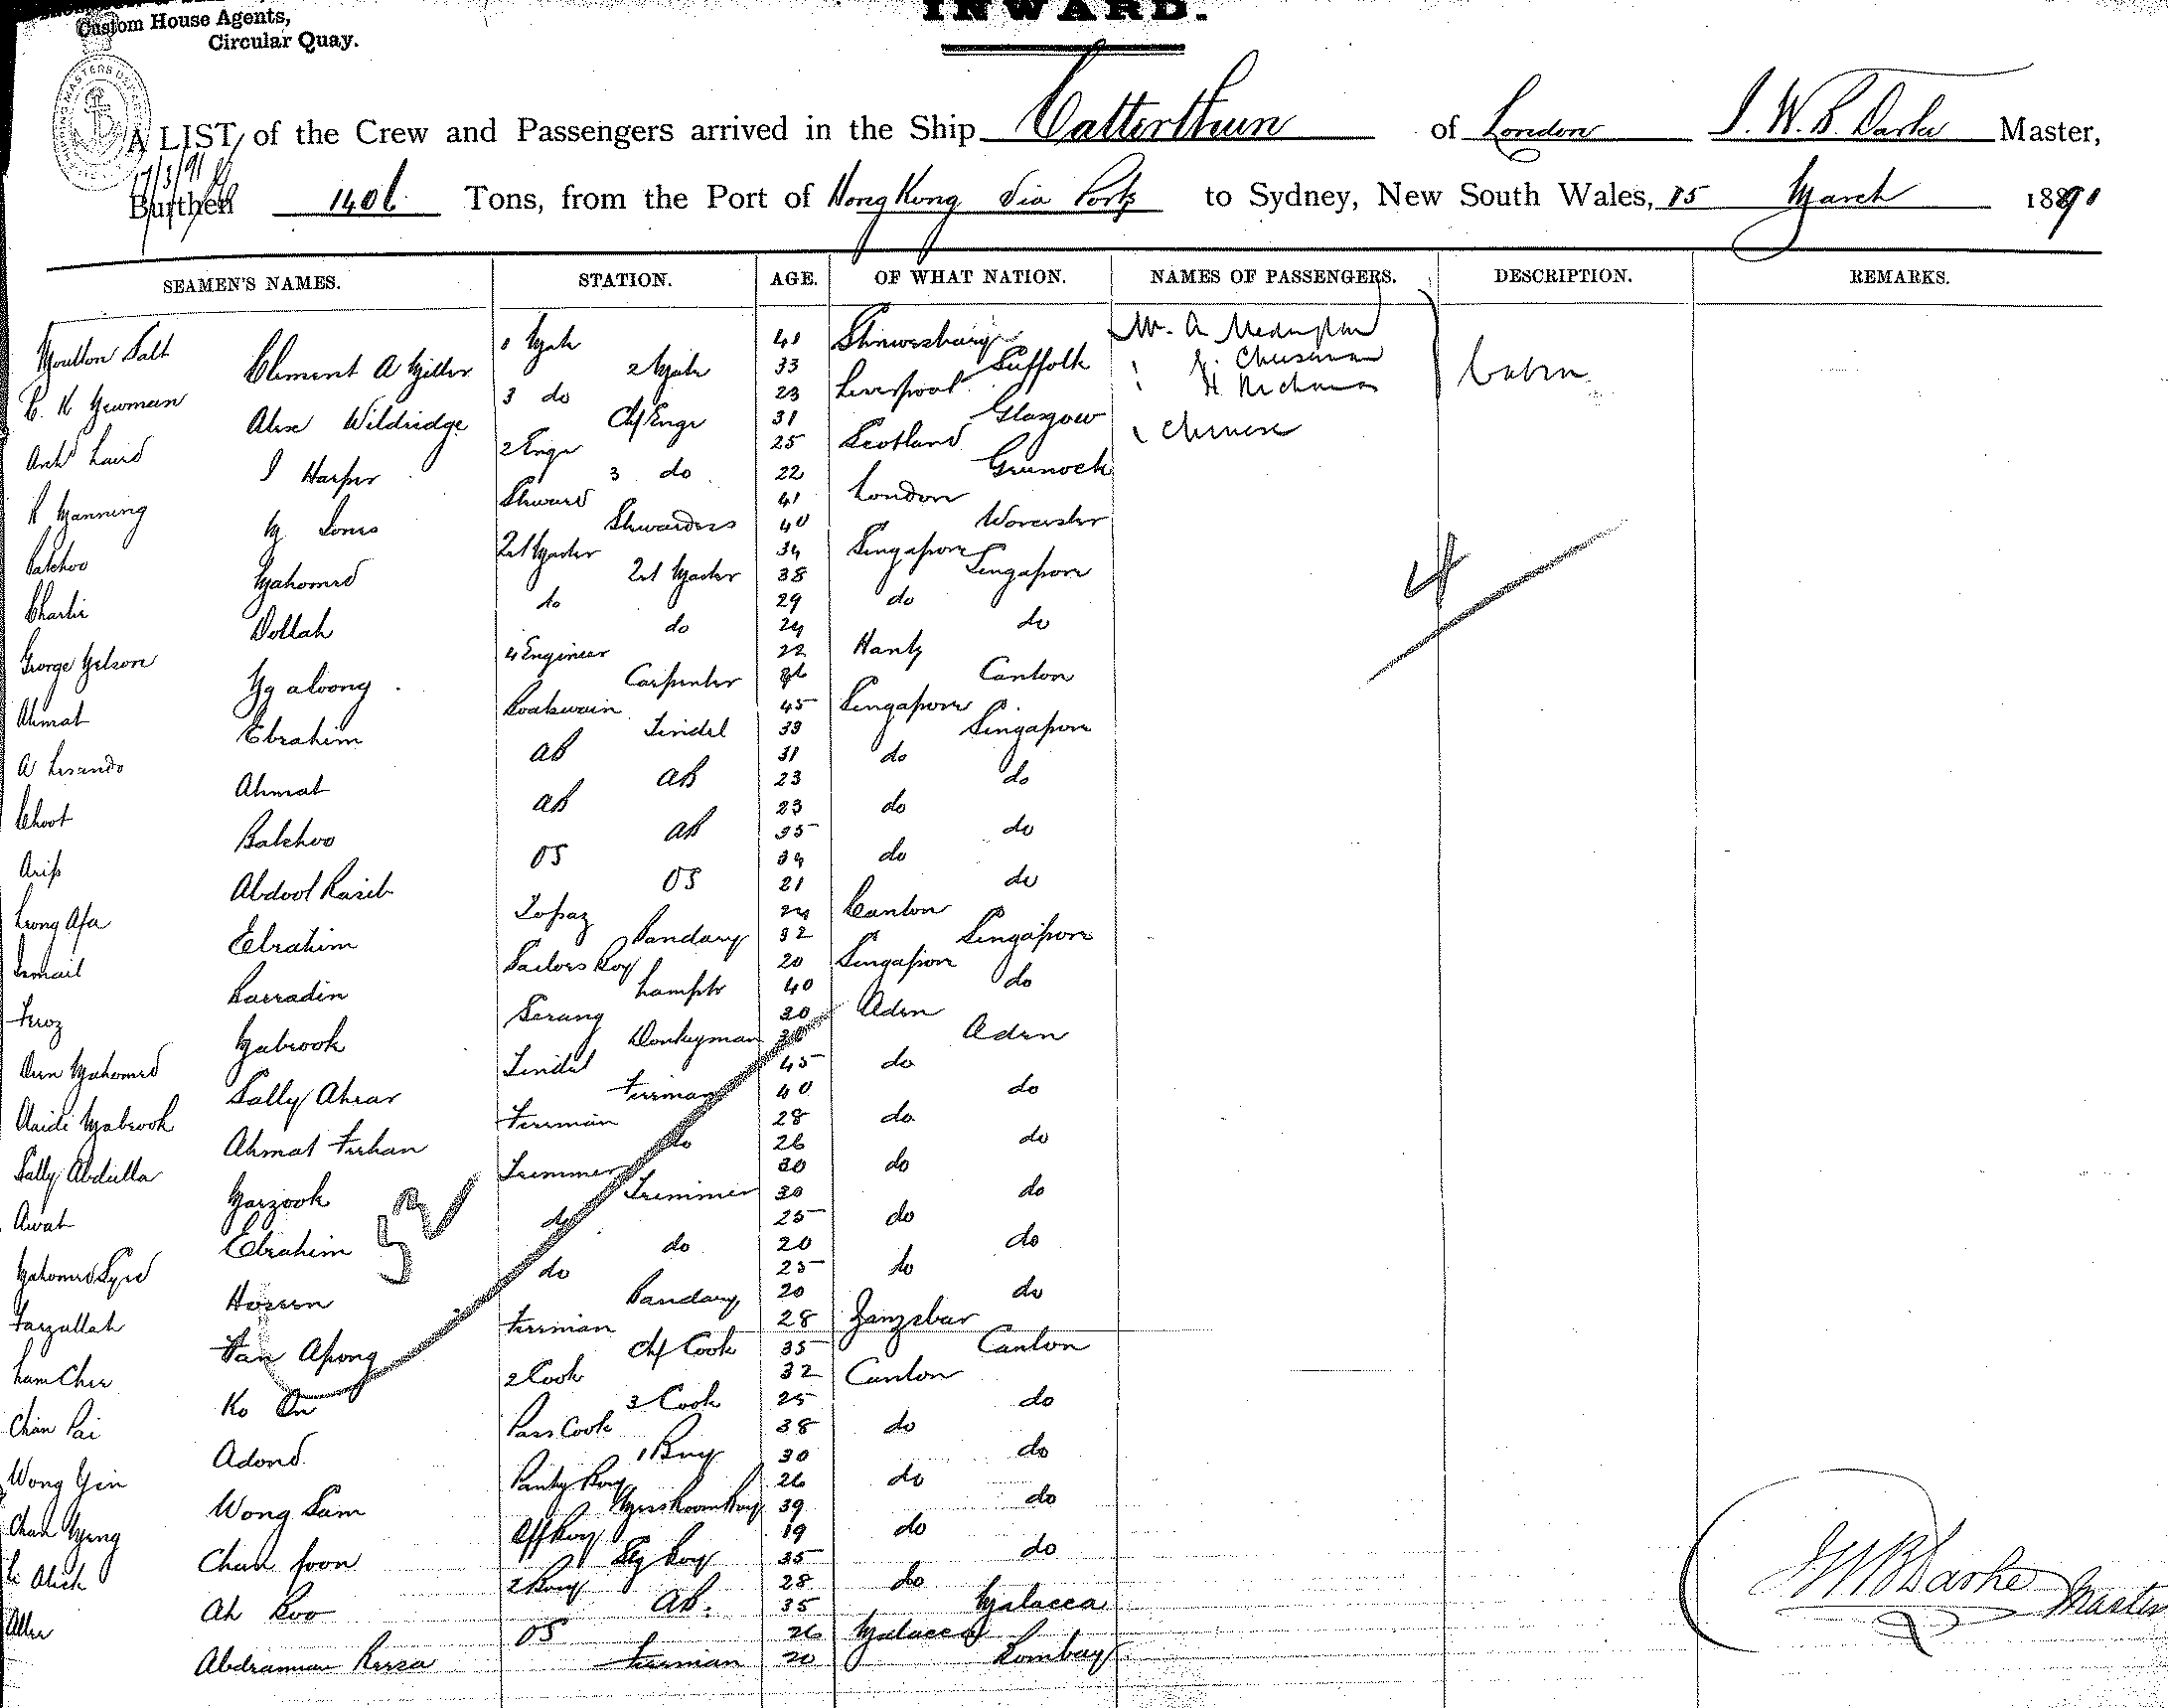 Custom House Agents,
Circular Quay.
INWARD.
A LIST of the Crew and Passengers arrived in the Ship Catterthun of London J. W. B. Darke Master,
17/3/91
Burthen 1406 Tons, from the Port of Hong Kong Via Ports to Sydney, New South Wales, 15 March 1891
SEAMEN'S NAMES. STATION. AGE. OF WHAT NATION. NAMES OF PASSENGERS. DESCRIPTION. REMARKS.
Moulton Salt 1 Mate 41 Shrewsbury Mr. A
Clement A Miller 2 Mate 33 Suffolk
C. K Newman 3 do 23 Liverpool Cabin
Alex Wildridge Chf Engr 31 Glasgow
Archd Laird 2 Engr 25 Scotland 1 Chinese
J Harper 3 do 22 Greenock
R Manning Steward 41 London
M Jones Stewardess 40 Worcester
Batchoo 2nd Master 34 Singapore
Mahomed 2nd Master 38 Singapore
Charlie do 29 do
Dollah do 24 do
George Nelson 4 Engineer 22 Hants
Ng aloong Carpenter 36 Canton
Ahmat Boatswain 45 Singapore
Ebrahim Tindel 33 Singapore
AB 31 do
Ahmat AB 23 do
Choot AB 23 do
Balchoo AB 35 do
Arip OS 34 do
Abdool Rasib OS 21 do
Leong Afa Topaz 24 Canton
Ebrahim Bandary 32 Singapore
Ismail Sailors Boy 20 Singapore
Barradin Lamptr 40 do
Feroz Serang 30 Aden
Mabrook Donkeyman 30 Aden
Deen Mahomed Tindel 45 do
Sally Ahrar Fireman 40 do
Mabrook Fireman 28 do
Ahmat Ferhan do 26 do
Sally Abdulla Trimmer 30 do
Marzook Trimmer 30 do
Awat do 25 do
Ebrahim do 20 do
Mahomed Syed do 25 do
Hosein Bandary 20 do
Farzullah Fireman 28 Zanzebar
Han Apong Chf Cook 35 Canton
Lam Chee 2 Cook 32 Canton
Ko On 3 Cook 25 do
Chan Pai Pass Cook 38 do
Adond 1 Boy 30 do
Wong Yin Pantry Boy 26 do
Wong Sam Messroom Boy 39 do
Chan Meng Off Boy 19 do
Chan foon Eng Boy 35 do
2 Boy 28 do
Ah Boo AB. 35 Malacca
Allee OS 26 Malacca
Abdraman Fireman 20 Bombay
4
52
JWB Darke Master